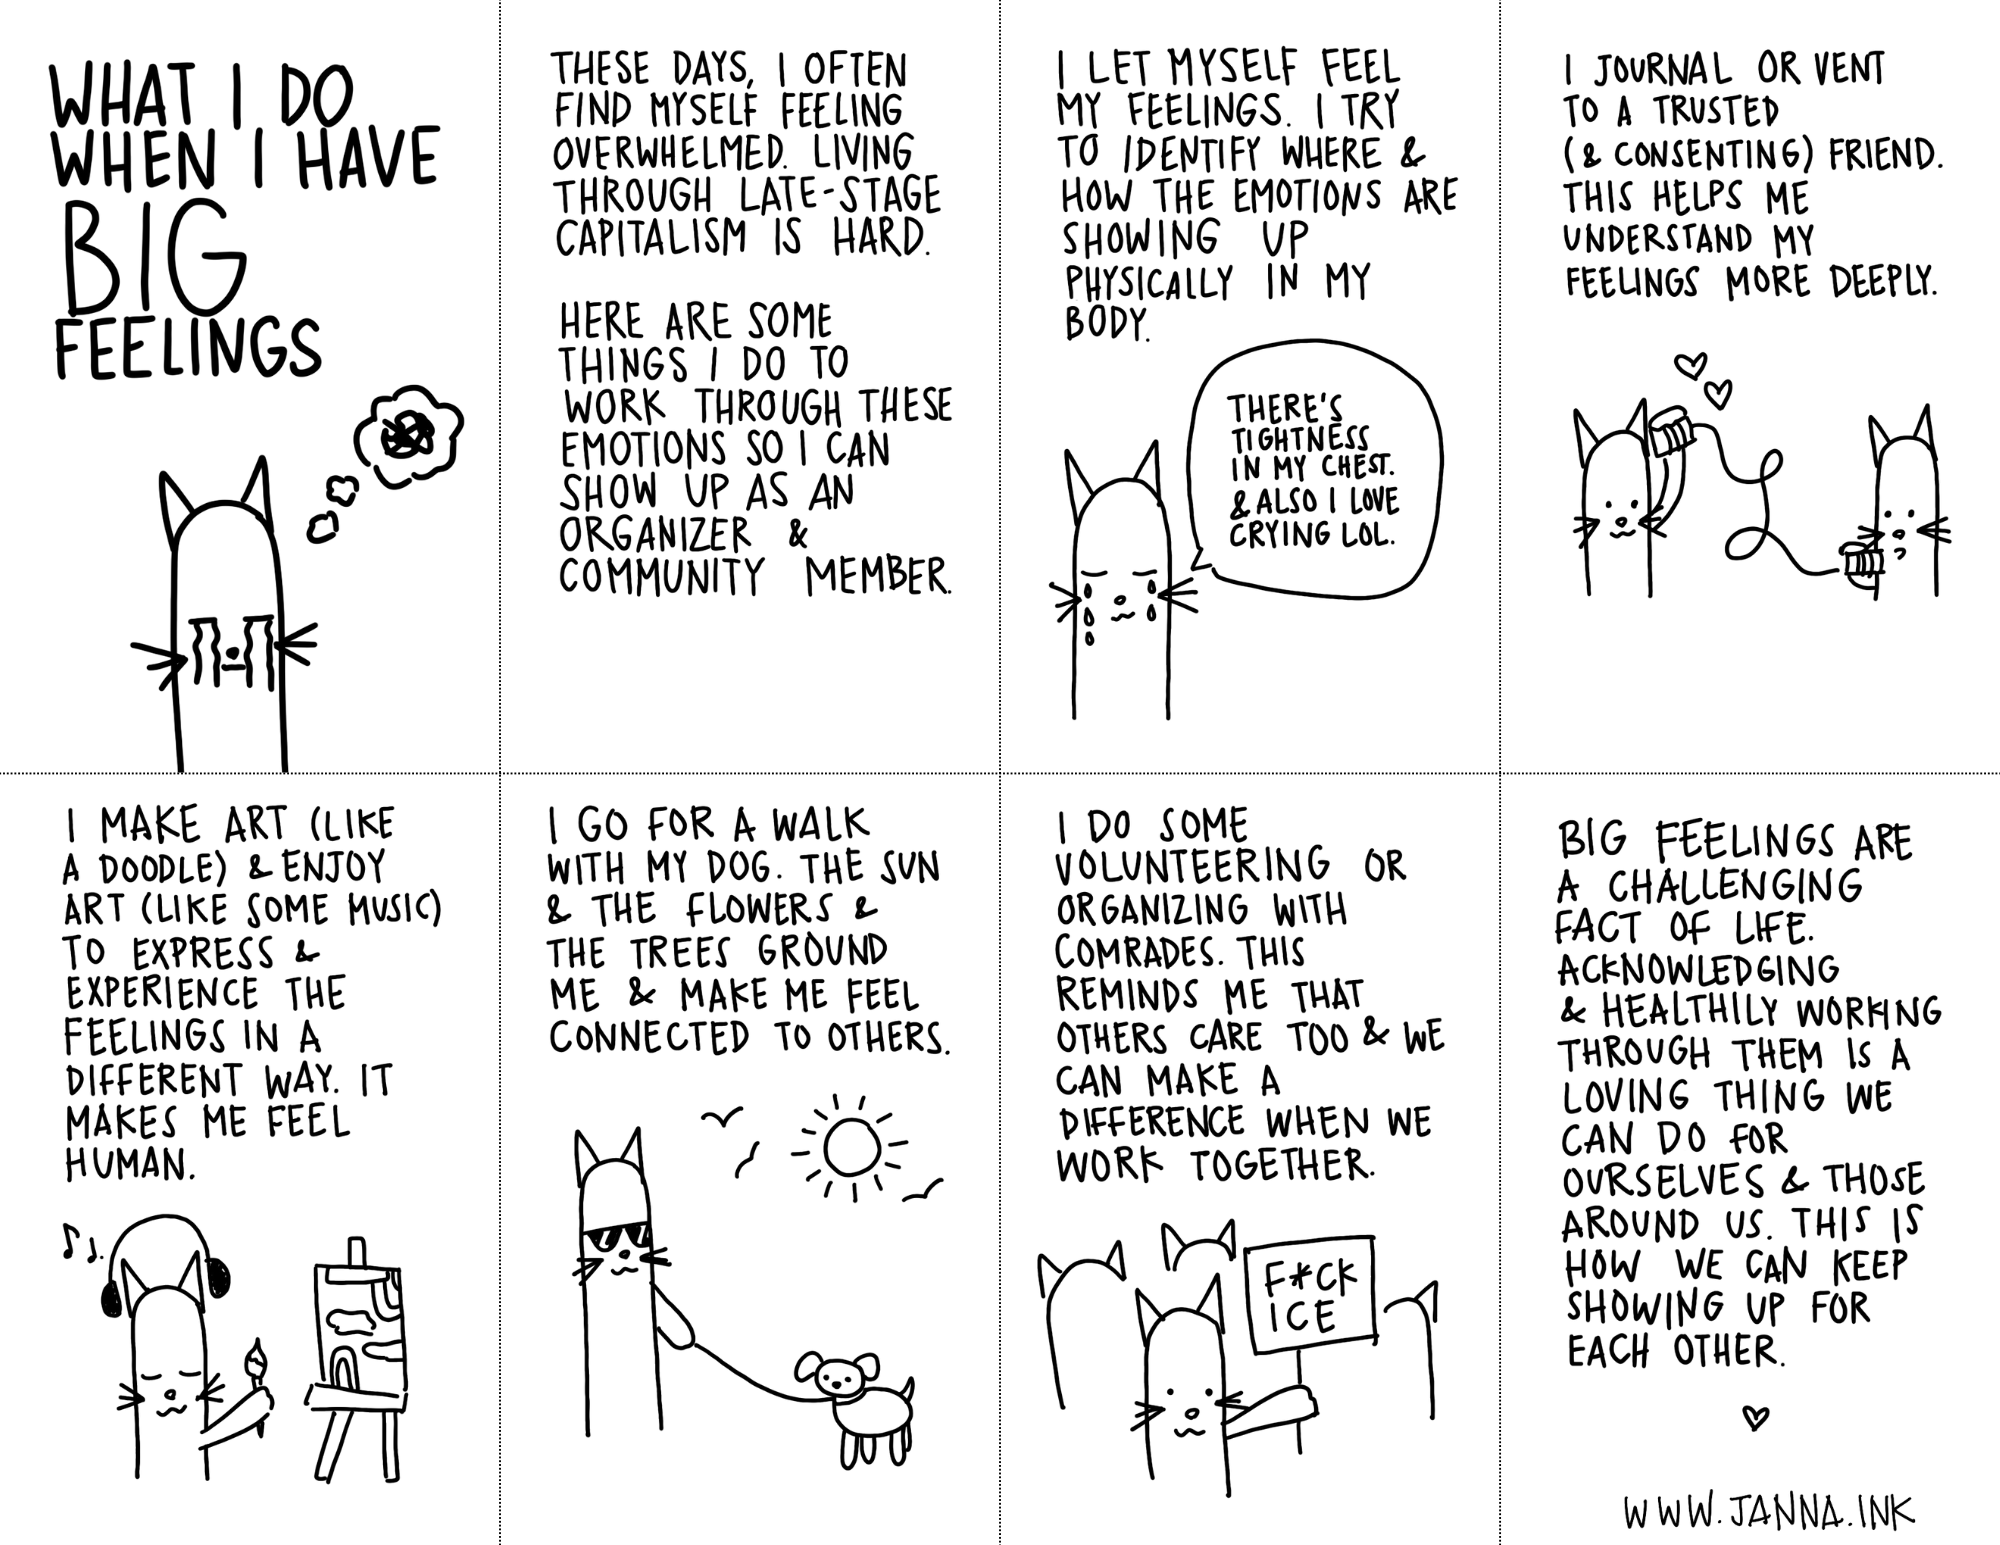 WHAT I DO
WHEN I HAVE
BIG
FEELINGS
THESE DAYS, I OFTEN
FIND MYSELF FEELING
OVERWHELMED. LIVING
THROUGH LATE-STAGE
CAPITALISM IS HARD.
HERE ARE SOME
THINGS I DO TO
WORK THROUGH THESE
EMOTIONS SO I CAN
SHOW UP AS AN
ORGANIZER &
COMMUNITY MEMBER.
I LET MYSELF FEEL
MY FEELINGS. I TRY
TO IDENTIFY WHERE &
HOW THE EMOTIONS ARE
SHOWING UP
PHYSICALLY IN MY
BODY.
THERE'S
TIGHTNESS
IN MY CHEST.
& ALSO I LOVE
CRYING LOL.
I JOURNAL OR VENT
TO A TRUSTED
(& CONSENTING) FRIEND.
THIS HELPS ME
UNDERSTAND MY
FEELINGS MORE DEEPLY.
I MAKE ART (LIKE
A DOODLE) & ENJOY
ART (LIKE SOME MUSIC)
TO EXPRESS &
EXPERIENCE THE
FEELINGS IN A
DIFFERENT WAY. IT
MAKES ME FEEL
HUMAN.
I GO FOR A WALK
WITH MY DOG. THE SUN
& THE FLOWERS &
THE TREES GROUND
ME & MAKE ME FEEL
CONNECTED TO OTHERS.
I DO SOME
VOLUNTEERING OR
ORGANIZING WITH
COMRADES. THIS
REMINDS ME THAT
OTHERS CARE TOO & WE
CAN MAKE A
DIFFERENCE WHEN WE
WORK TOGETHER.
F*CK
ICE
BIG FEELINGS ARE
A CHALLENGING
FACT OF LIFE.
ACKNOWLEDGING
& HEALTHILY WORKING
THROUGH THEM IS A
LOVING THING WE
CAN DO FOR
OURSELVES & THOSE
AROUND US. THIS IS
HOW WE CAN KEEP
SHOWING UP FOR
EACH OTHER.
WWW.JANNA.INK